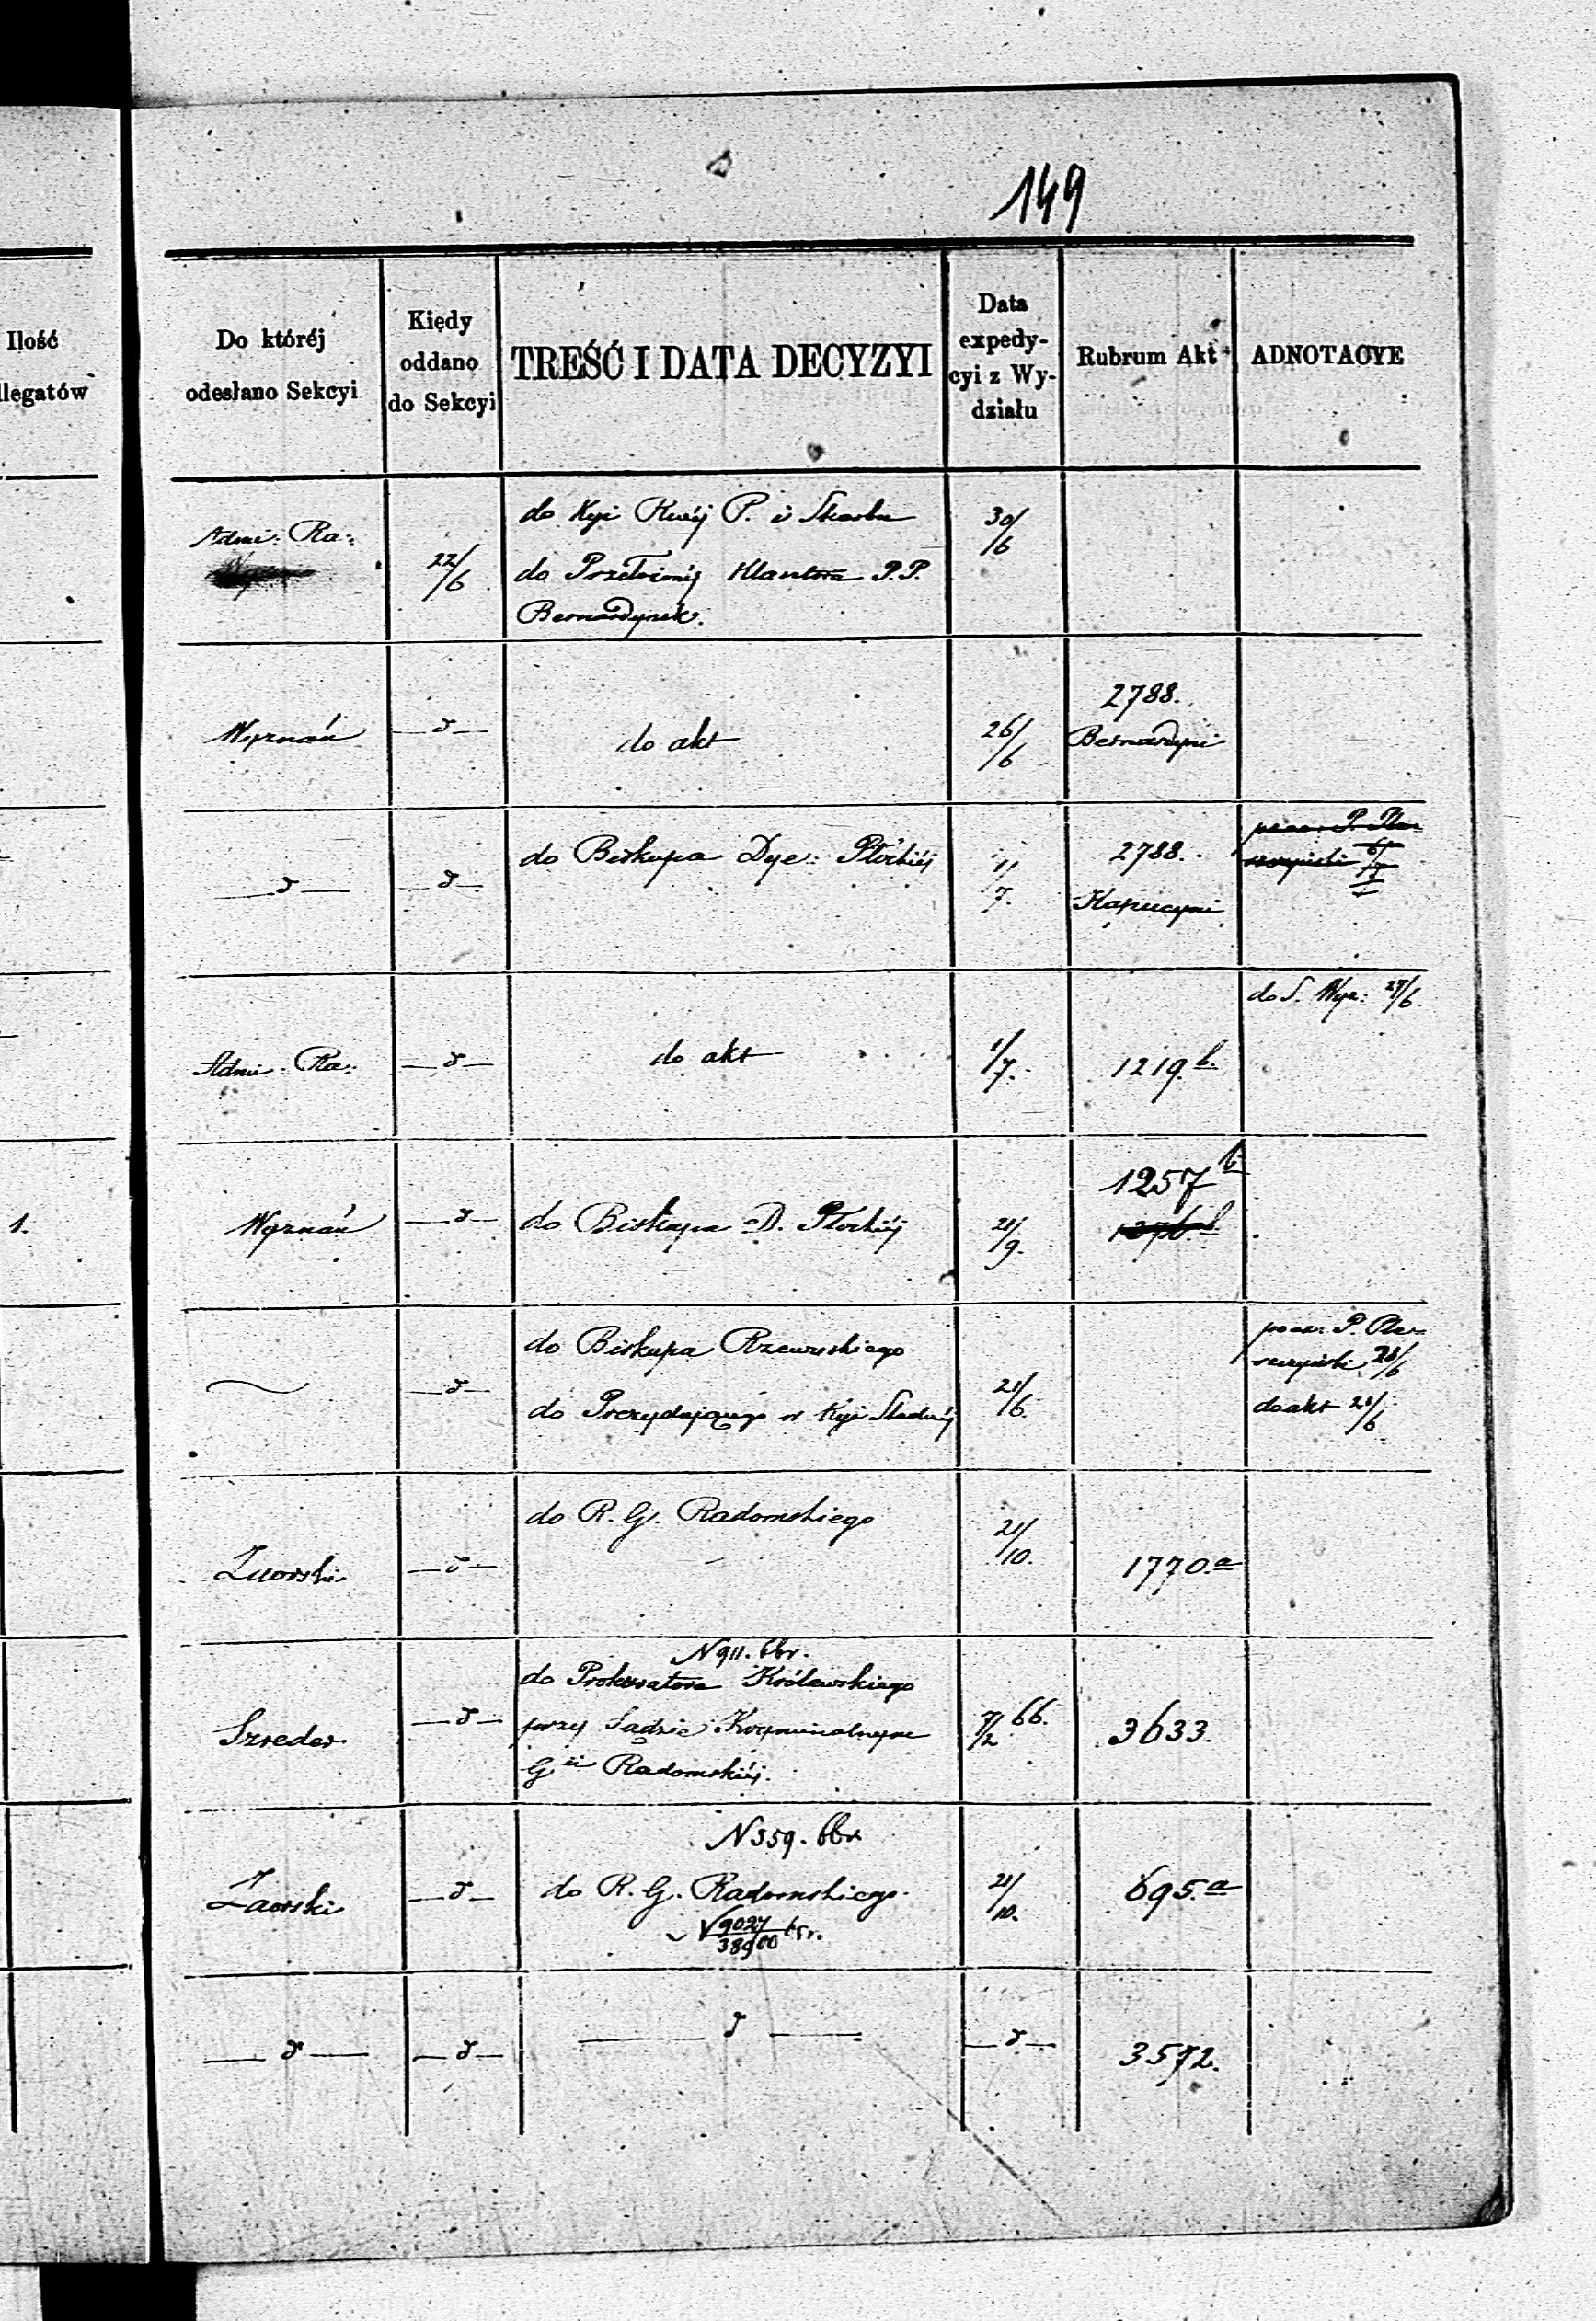 149
Ilość
llegatów
Do któréj
odesłano Sekcyi
Kiędy
oddano
do Sekcyi
TREŚĆ I DATA DECYZYI
Data
expedy-
cyi z Wy-
działu
Rubrum Akt
ADNOTACYE
Admi: Ra:
22/6
do Kyi Rwéj P. i Skarbu
do Przełożonéj Klasztoru P.P.
Bernardynek.
30/6
Wyznań
—d—
do akt
26/6
2788.
Bernardyni
—d—
—d—
do Biskupa Dye: Płockiéj
1/7.
2788.
Kapucyni
do S. Wyz: 27/6.
Admi: Ra:
—d—
do akt
1/7.
1219.b.
1.
Wyznań
—d—
do Biskupa D. Płockiéj
21/9.
1257b
do Biskupa Rzewuskiego
do Prezydującego w Kyi Śledczéj
—d—
21/6.
P.
28/6
do akt 21/6
—d—
do R. G. Radomskiego
21/10.
1770.a
N 911. 66r.
do Prokuratora Królewskiego
Szreder
—d—
przy Sądzie Kryminalnym
Gii Radomskiéj.
7/2 66.
3633.
N 359. 66r
Zaorski
—d—
do R. G. Radomskiego.
9027/38900 65r.
21/10.
695.a
—d—
—d—
—d—
—d—
3572.